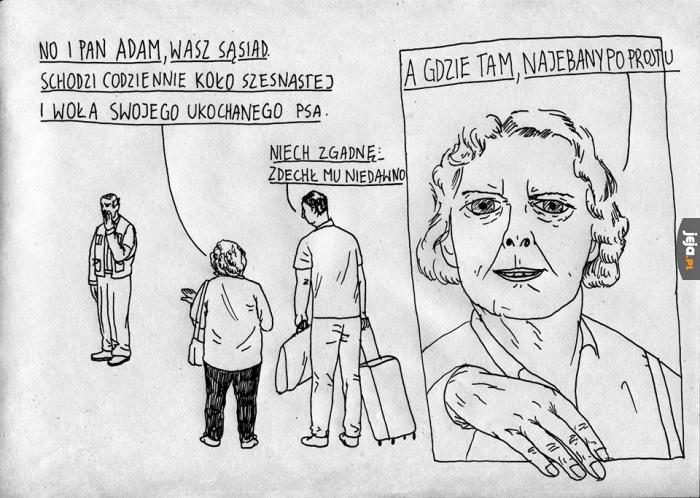 NO I PAN ADAM, WASZ SĄSIAD.
SCHODZI CODZIENNIE KOŁO SZESNASTEJ
I WOŁA SWOJEGO UKOCHANEGO PSA.
NIECH ZGADNĘ:
ZDECHŁ MU NIEDAWNO
A GDZIE TAM, NAJEBANY PO PROSTU
jeja.pl